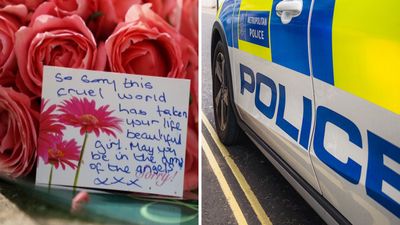 So sorry this
cruel world
has taken
your life
beautiful
girl. May you
be in the arms
of the angels
xxx
Sorry!
METROPOLITAN
POLICE
POLICE